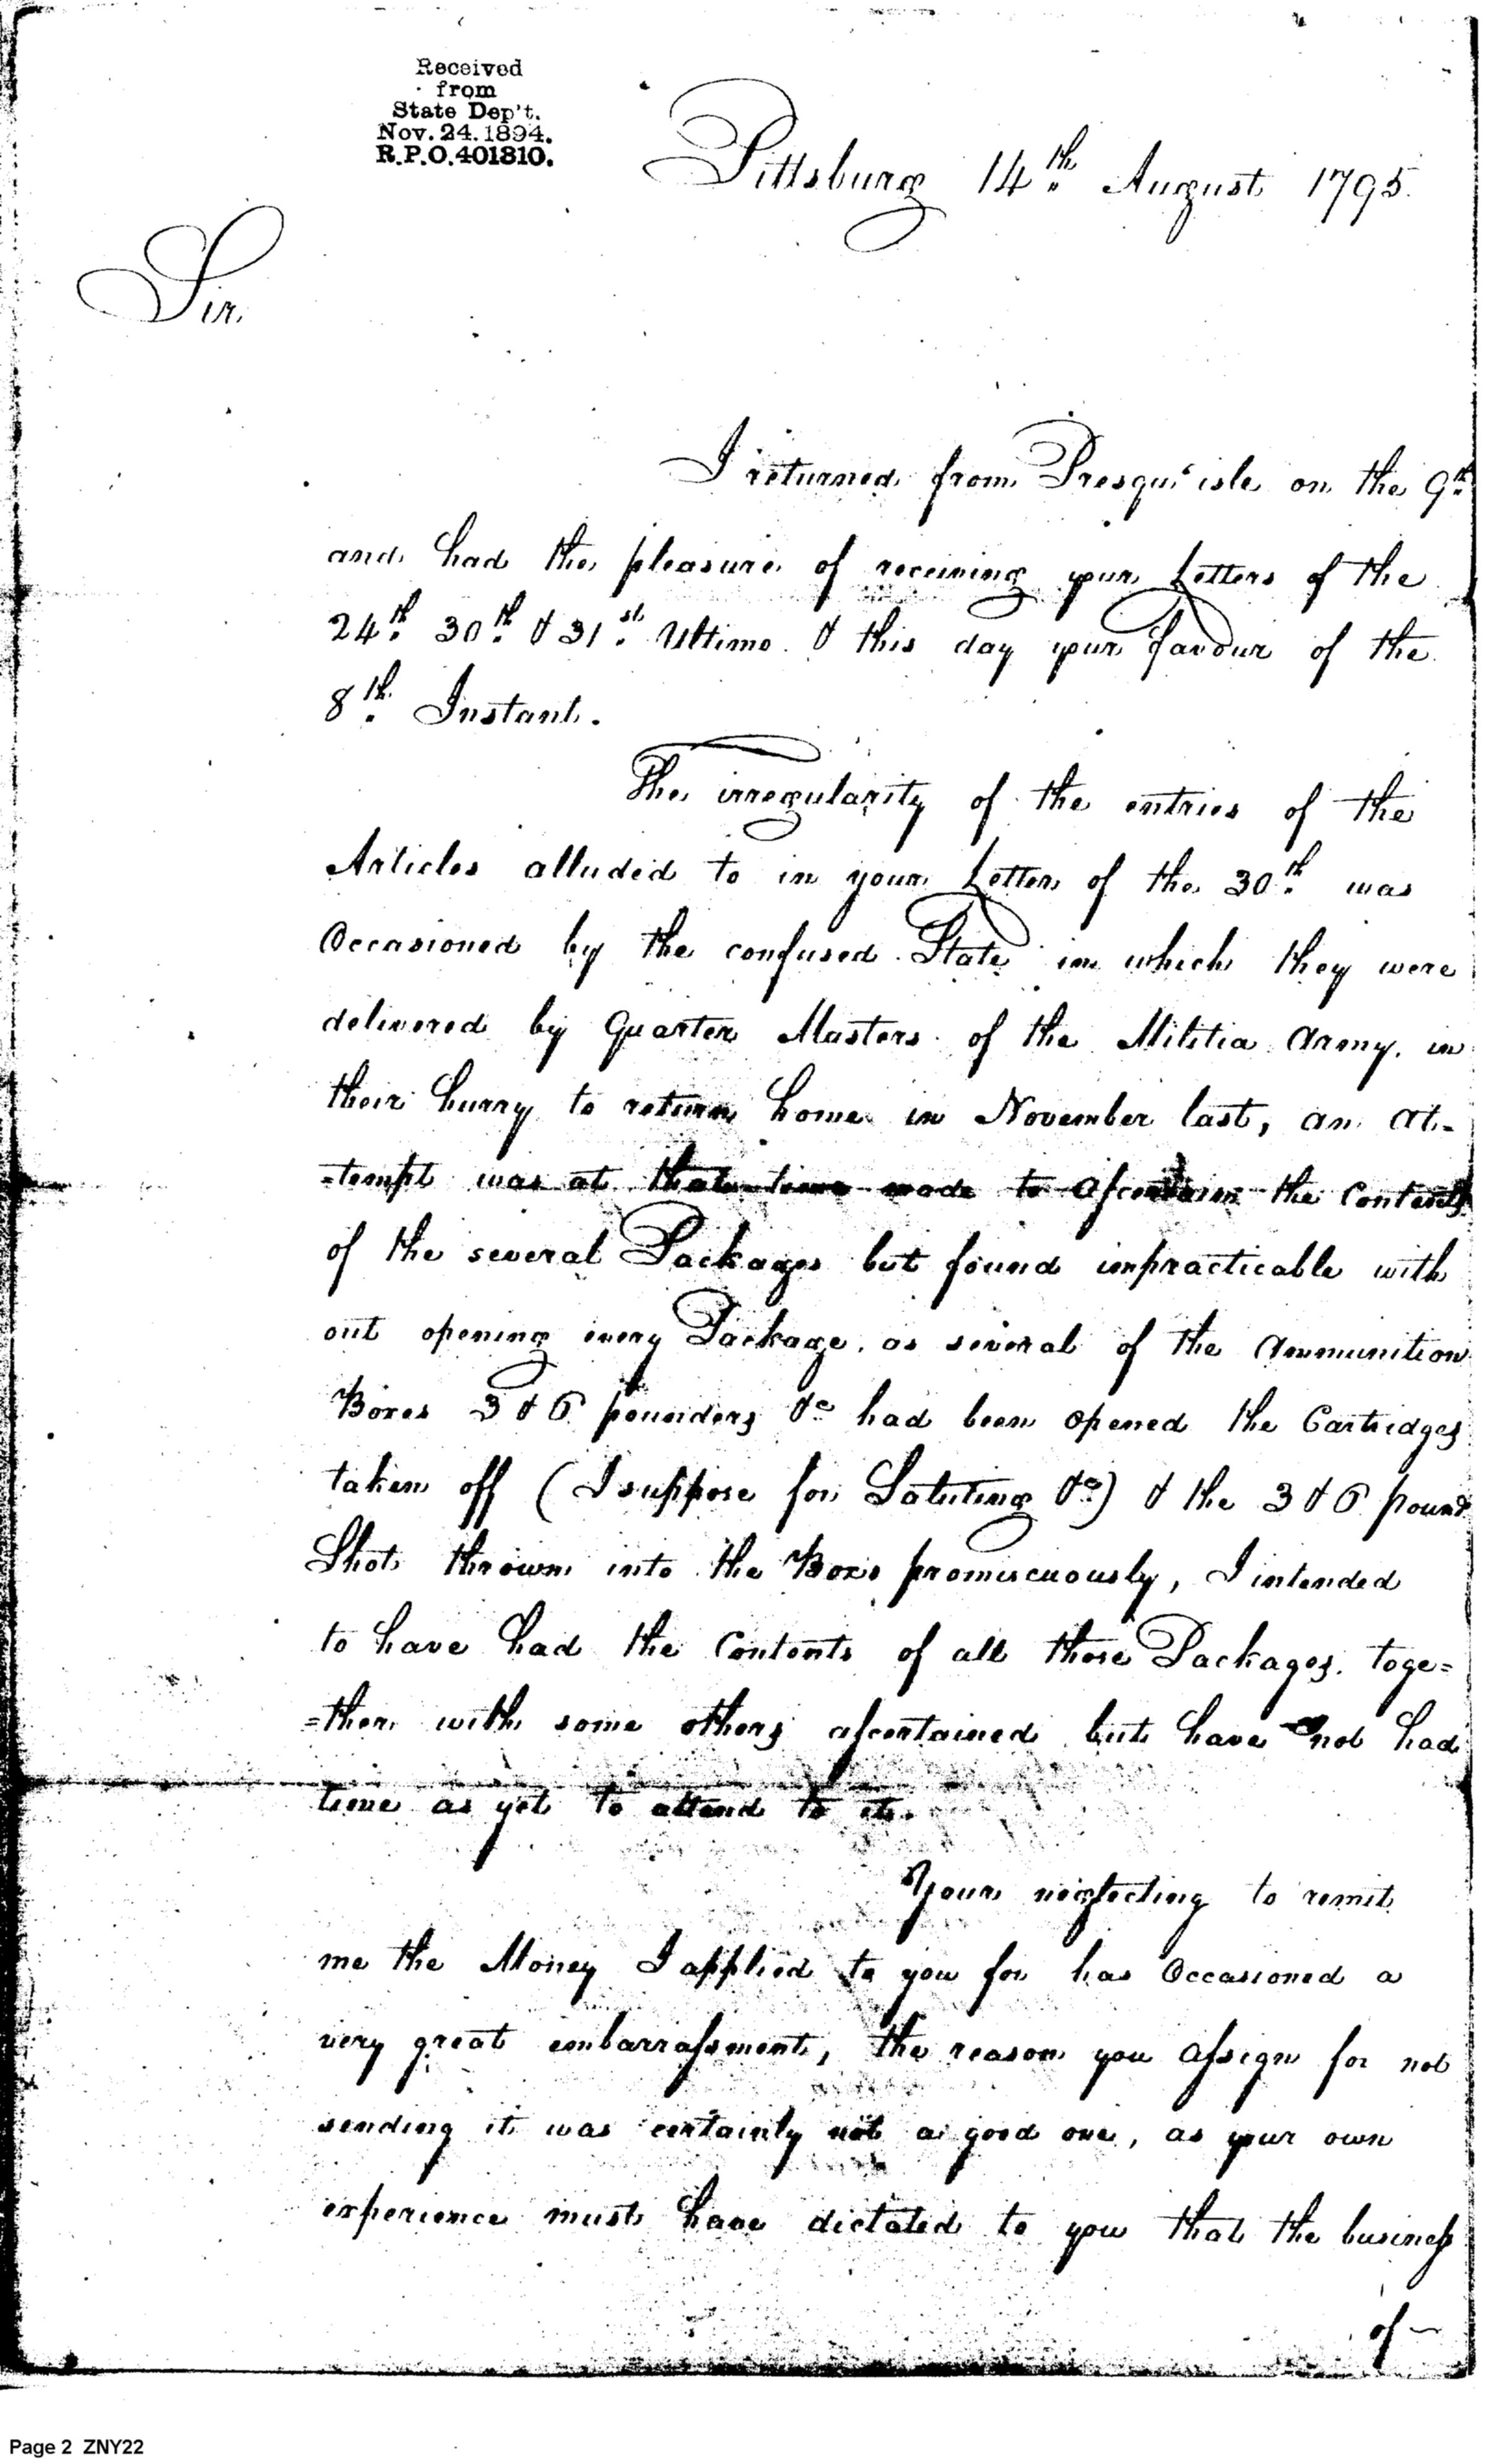 Received
from
State Dep't.
Nov. 24. 1894.
R.P.O. 401810.
Pittsburg 14th August 1795.
Sir,
I returned from Presqu'isle on the 9th
and had the pleasure of receiving your Letters of the
24th 30th & 31st Ultimo. & this day your favour of the
8th Instant.
The irregularity of the entries of the
Articles alluded to in your Letter of the 30th was
Occasioned by the confused State in which they were
delivered by Quarter Masters of the Militia Army. in
their hurry to return home in November last, an at-
=tempt was at that time made to ascertain the Contents
of the several Packages but found impracticable with
out opening every Package. as several of the Ammunition
Boxes 3 & 6 pounders &c had been opened the Cartridges
taken off (I suppose for Saluting &c) & the 3 & 6 pound
Shot thrown into the Boxes promiscuously, I intended
to have had the Contents of all those Packages. toge=
=ther with some others ascertained but have not had
time as yet to attend to it.
Your neglecting to remit
me the Money I applied to you for has Occasioned a
very great embarrassment, the reason you assign for not
sending it was certainly not a good one, as your own
experience must have dictated to you that the business
of
Page 2 ZNY22